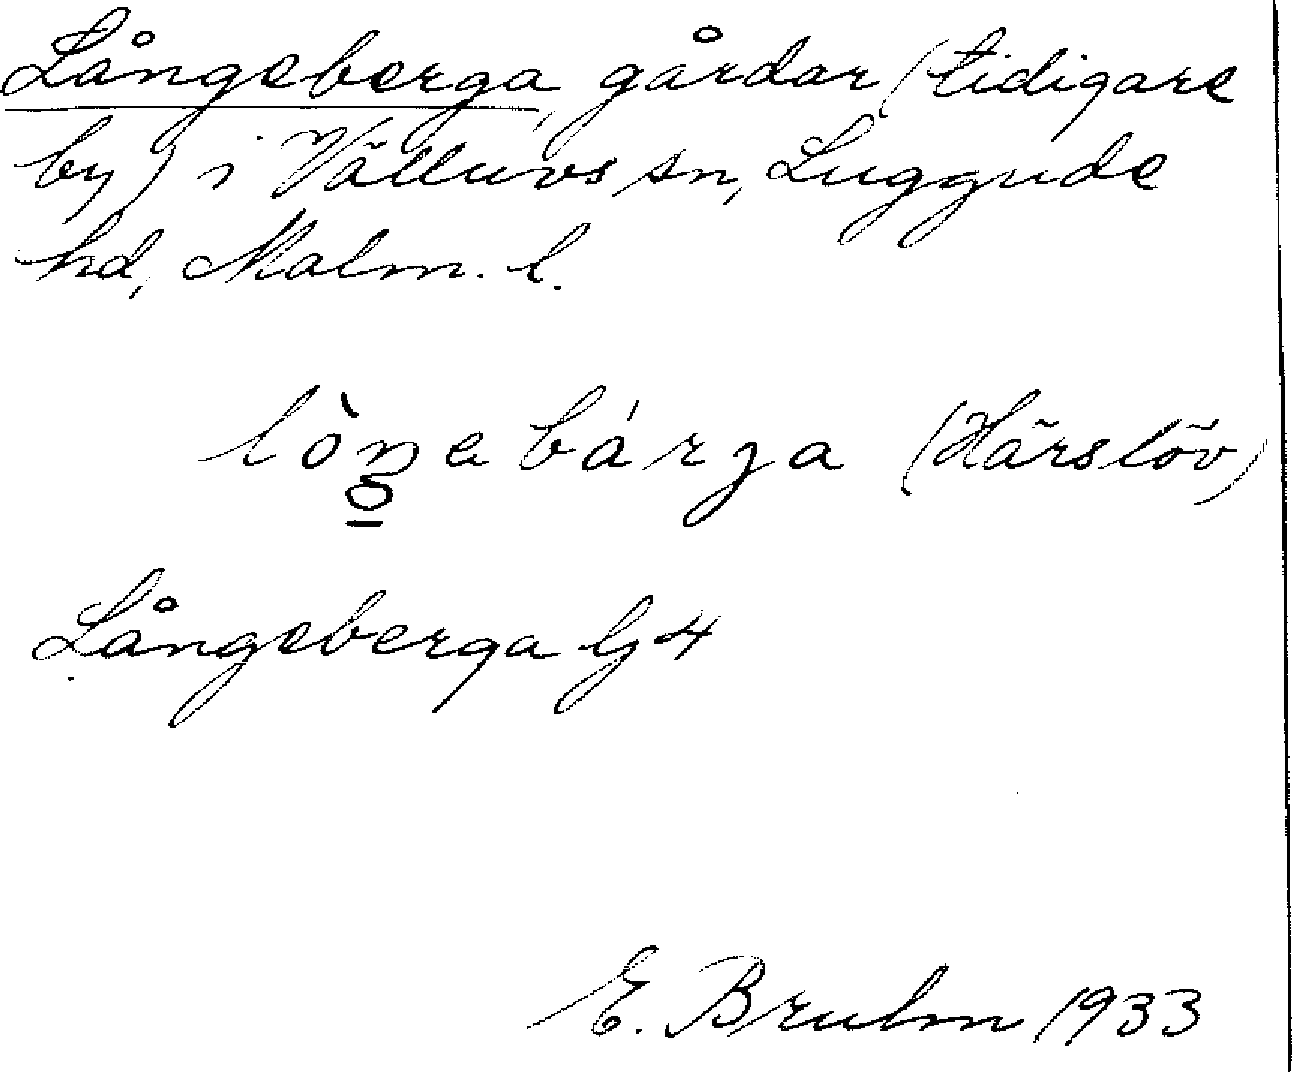 Långeberga, gårdar (tidigare
by) i Välluvs sn, Luggude
hd, Malm. l.
lòŋabárʒa (Härslöv)
Långeberga G 4
E. Bruhn 1933